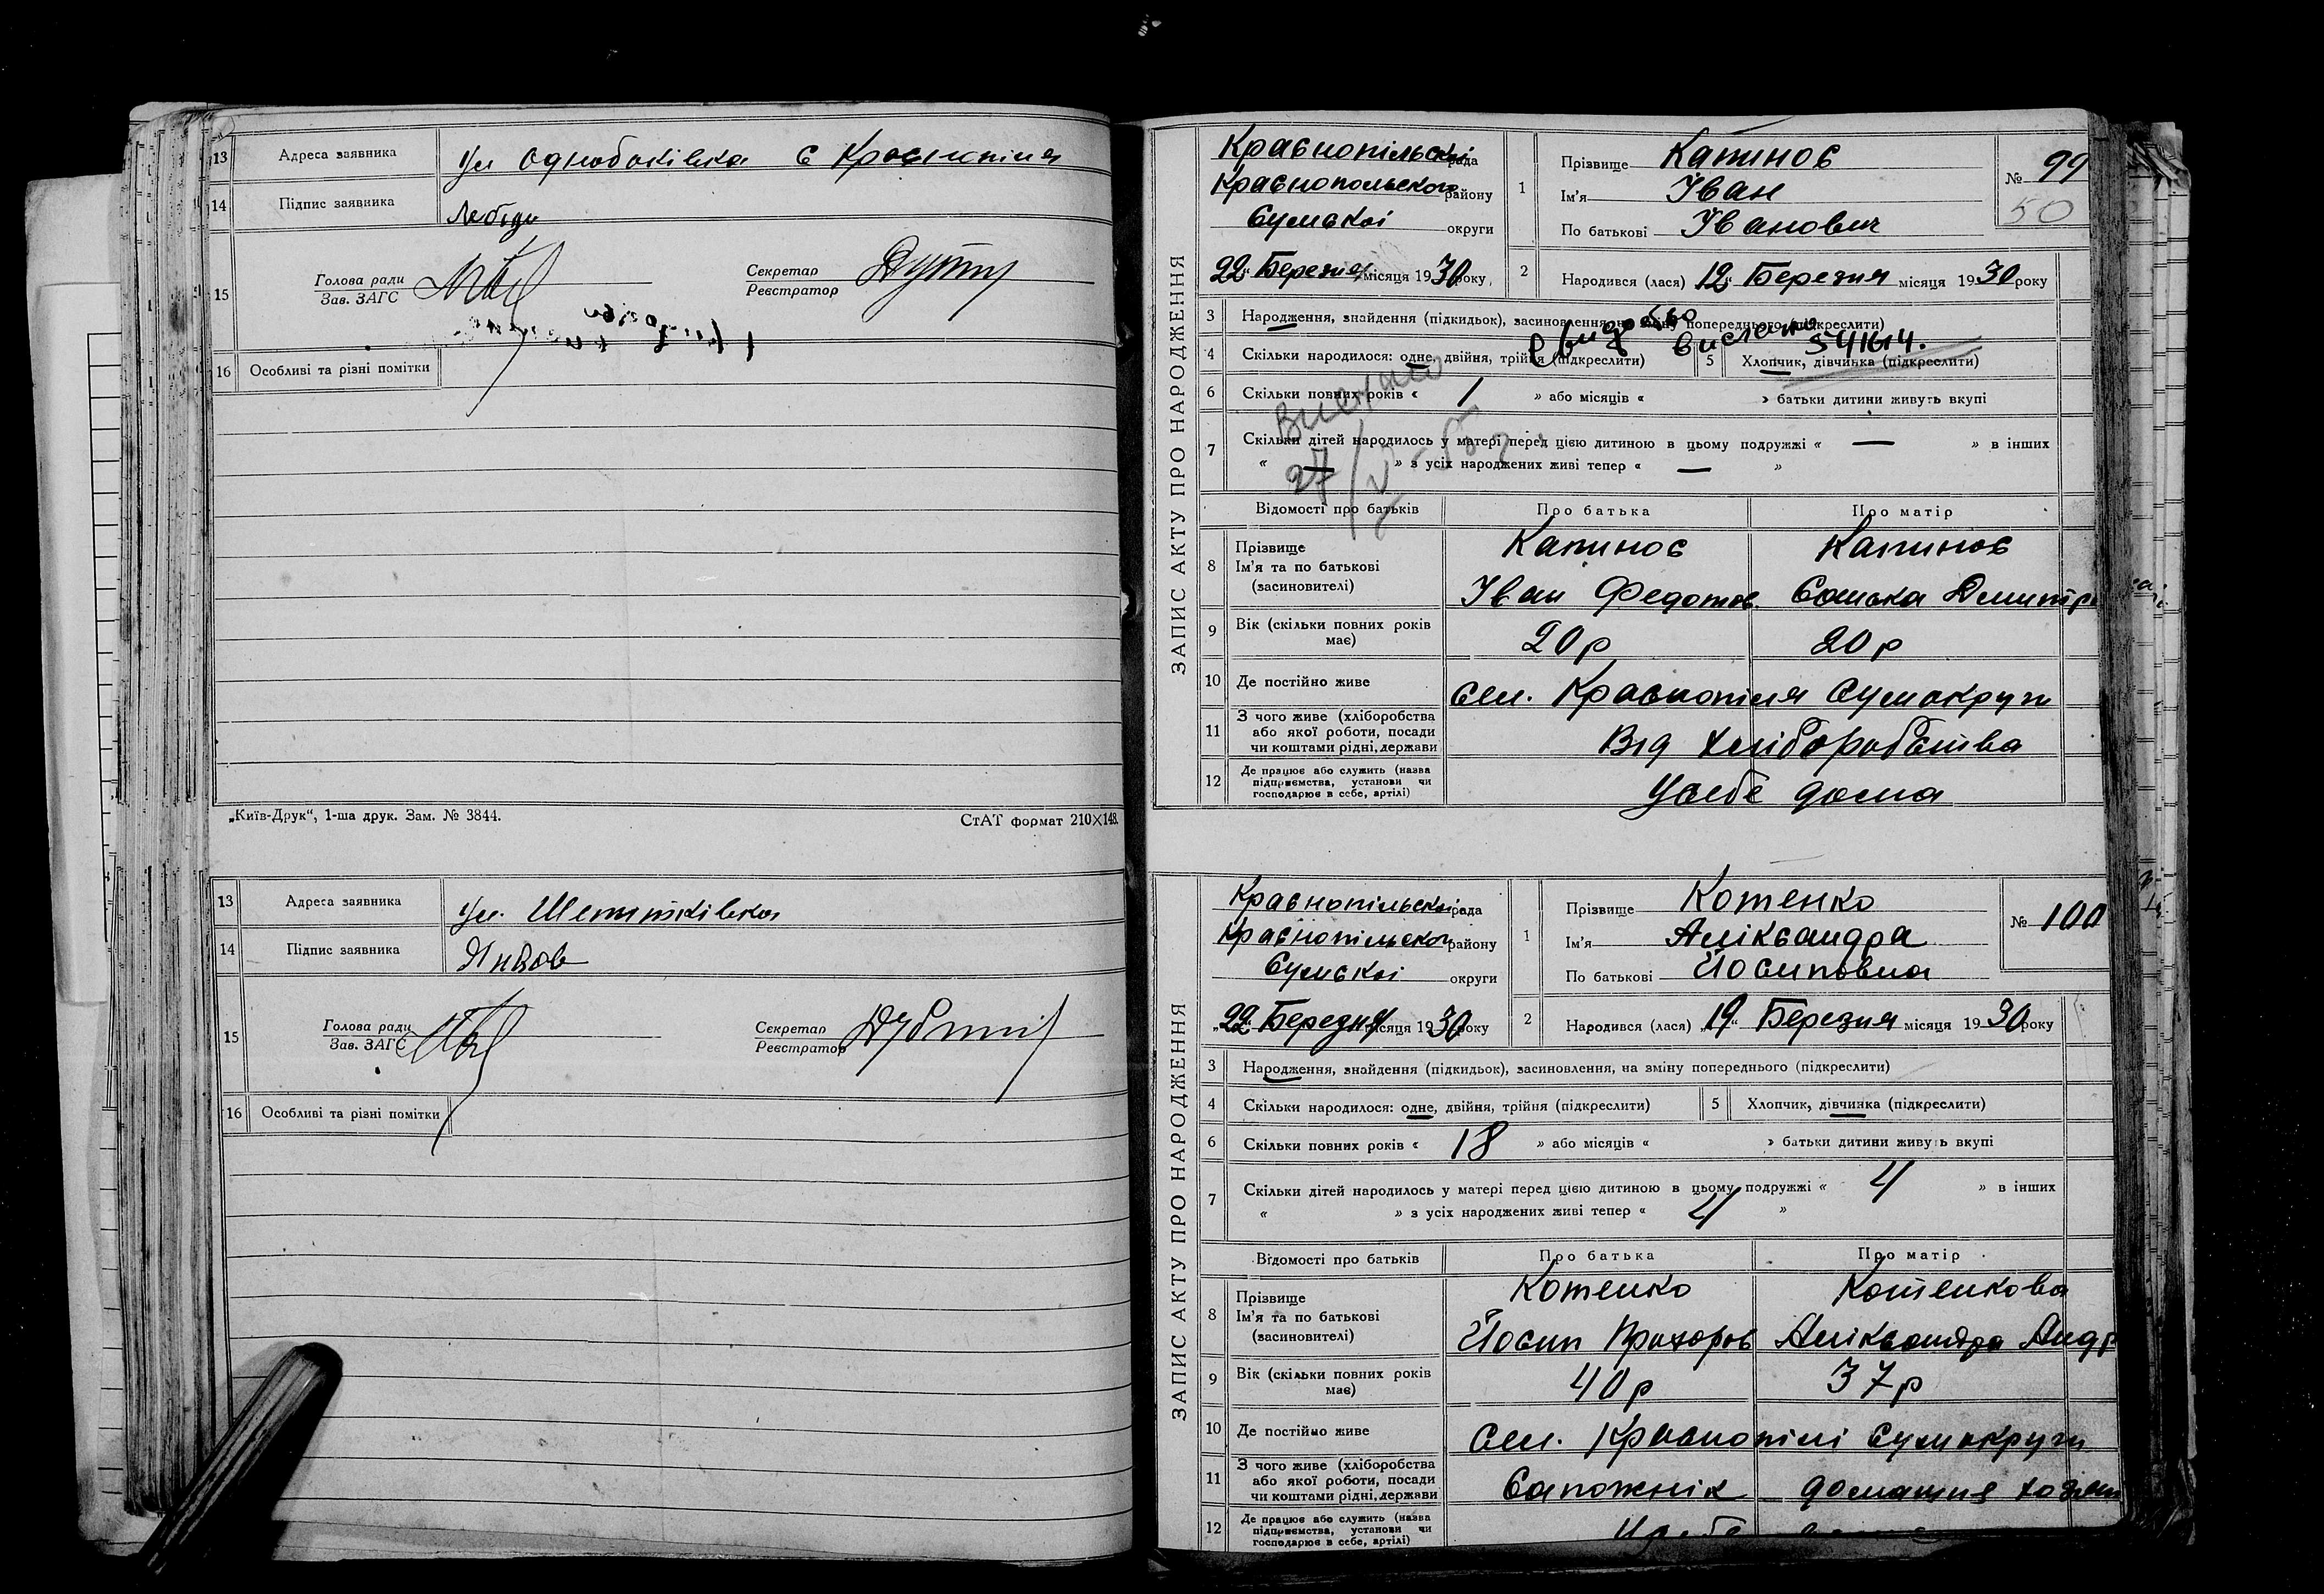 13 Адреса заявника ул Однобоківка с Краснопілля
14 Підпис заявника
15 Голова ради
Зав. ЗАГС
Секретар
Реєстратор
16 Особливі та різні помітки
„Київ-Друк“, 1-ша друк. Зам. № 3844.
СтАТ формат 210X148.
13 Адреса заявника ул.
14 Підпис заявника
15 Голова ради
Зав. ЗАГС
Секретар
Реєстратор
16 Особливі та різні помітки
ЗАПИС АКТУ ПРО НАРОДЖЕННЯ
Краснопільскої рада
Краснопольского району
Сумської округи
22 Березня місяця 1930 року
1 Прізвище Капинос
Ім’я Іван
По батькові Іванович
№ 99
50
2 Народився (лася) 12 Березня місяця 1930 року
3 Народження, знайдення (підкидьок), засиновлення, на зміну попереднього (підкреслити)
выслано
4 Скільки народилося: одне, двійня, трійня (підкреслити)
5 Хлопчик, дівчинка (підкреслити)
6 Скільки повних років « 1 » або місяців « » батьки дитини живуть вкупі
7 Скільки дітей народилось у матері перед цією дитиною в цьому подружжі « — » в інших
« — » з усіх народжених живі тепер « — »
Відомості про батьків Про батька Про матір
8 Прізвище Капинос Капинос
Ім’я та по батькові Іван Федотов
(засиновителі)
9 Вік (скільки повних років має) 20 р 20 р
10 Де постійно живе Сел. Краснопілля Сумокруги
11 З чого живе (хліборобства
або якої роботи, посади Від хліборобства
чи коштами рідні, держави
12 Де працює або служить (назва
підприємства, установи чи У себе дома
господарює в себе, артілі)
ЗАПИС АКТУ ПРО НАРОДЖЕННЯ
Краснопільскої рада
Краснопільского району
Сумської округи
22 Березня місяця 1930 року
1 Прізвище Котенко
Ім’я Аліксандра
По батькові Йосиповна
№ 100
2 Народився (лася) 19 Березня місяця 1930 року
3 Народження, знайдення (підкидьок), засиновлення, на зміну попереднього (підкреслити)
4 Скільки народилося: одне, двійня, трійня (підкреслити)
5 Хлопчик, дівчинка (підкреслити)
6 Скільки повних років « 18 » або місяців « » батьки дитини живуть вкупі
7 Скільки дітей народилось у матері перед цією дитиною в цьому подружжі « 4 » в інших
« » з усіх народжених живі тепер « 4 »
Відомості про батьків Про батька Про матір
8 Прізвище Котенко Котенкова
Ім’я та по батькові Йосип Прохоров Аліксандра Андр
(засиновителі)
9 Вік (скільки повних років має) 40 р 37 р
10 Де постійно живе Сел. Краснопілі Сумокруги
11 З чого живе (хліборобства
або якої роботи, посади Сапожнік домашнє
чи коштами рідні, держави
12 Де працює або служить (назва
підприємства, установи чи
господарює в себе, артілі)